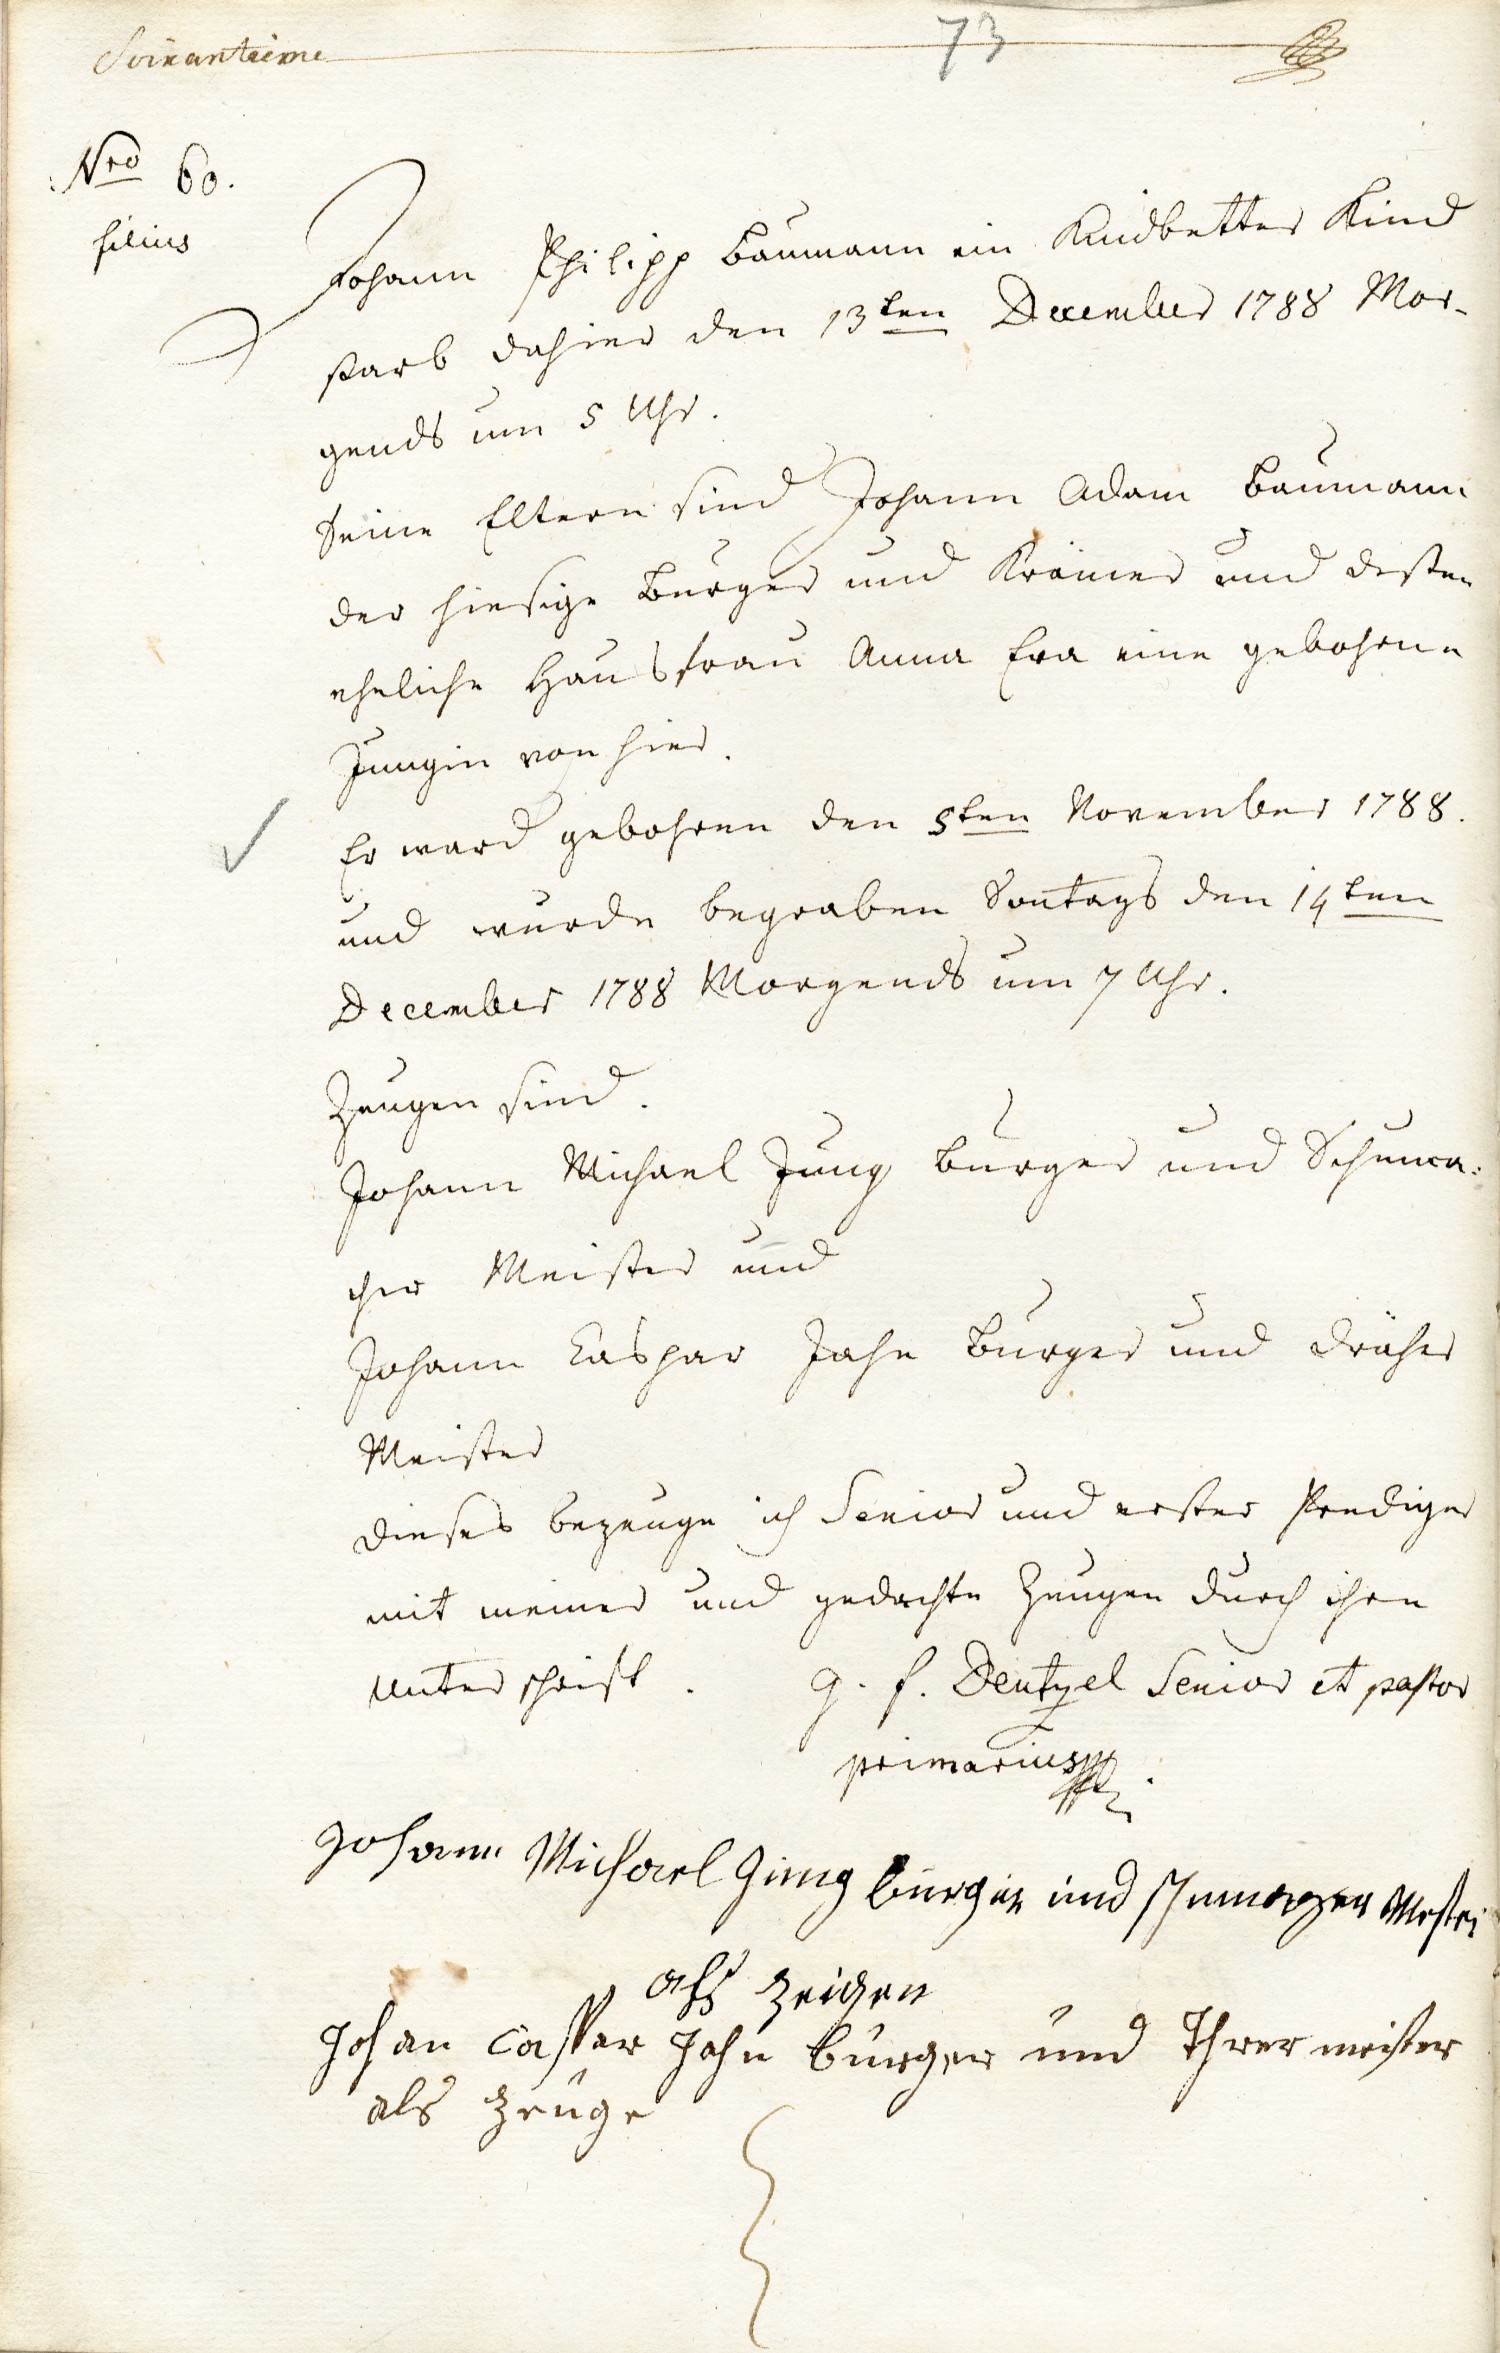 Soixantieme
73
Nro 60.
filius
Johann Philipp Baumann ein Kindbetter Kind
starb dahier den 13ten December 1788 Mor-
gends um 5 Uhr.
Seine Eltern sind Johann Adam Baumann
der hiesige Burger und Krämer und dessen
eheliche Hausfrau Anna Eva eine gebohrne
Jungin von hier.
Er ward gebohren den 5ten November 1788.
und wurde begraben Sontags den 14ten
December 1788 Morgends um 7 Uhr.
Zeugen sind.
Johann Michael Jung Burger und Schuma-
cher Meister und
Johann Caspar Jahn Burger und Dräher
Meister
dieses bezeuge ich Senior und erster Prediger
mit meiner und gedachte Zeugen durch ihre
Unterschrift. G. F. Dentzel Senior et pastor
primarius
Johann Michael Jung burger und schumacher Mester
alß zeigen
Johan Casper Jahn burger und Threr meister
als zeuge